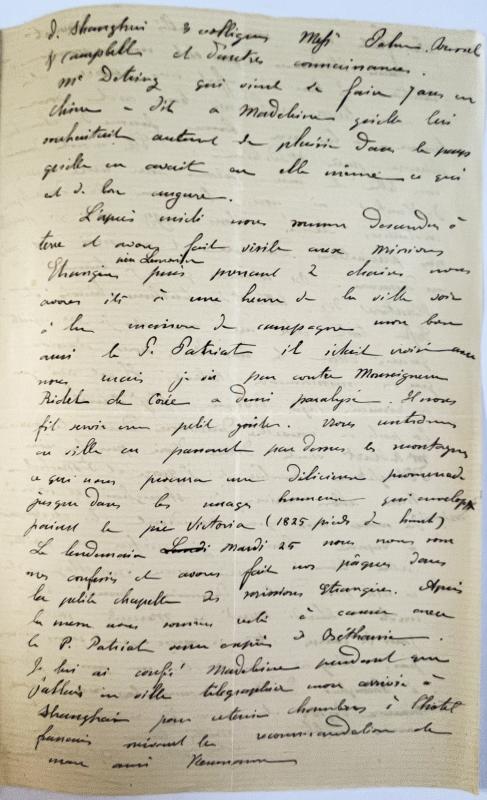 d. Shanghai 3 collègues Mess
& Campbell et d'autres connaissances.
Mr Detring qui vient de faire 7 ans en
Chine a dit à Madeleine qu'elle lui
souhaitait autant de plaisir dans le pays
qu'elle en avait eu elle même ce qui
est de bon augure.
L'après midi nous sommes descendus à
terre et avons fait visite aux missions
Etrangères puis prenant 2 chaises nous
avons été à une heure de la ville voir
à la maison de campagne mon bon
ami le P. Patriat il était
nous mais j'ai vu par contre Monseigneur
Ridel de Corée a demi paralysé. Il nous
fit servir un petit goûter. Nous
en ville en passant par dessus les montagnes
ce qui nous procura une délicieuse promenade
jusque dans les nuages qui envelop
paient le pic Victoria (1825 pieds de haut)
Le lendemain Lundi Mardi 25 nous nous som
mes confessés et avons fait nos pâques dans
la petite chapelle des missions étrangères. Après
la messe nous sommes resté à causer avec
le P. Patriat venu exprès de Béthanie.
Je lui ai confié Madeleine pendant que
j'allais en ville télégraphier mon arrivée à
Shanghai pour retenir chambres à l'hotel
français suivant la recommandation de
mon ami